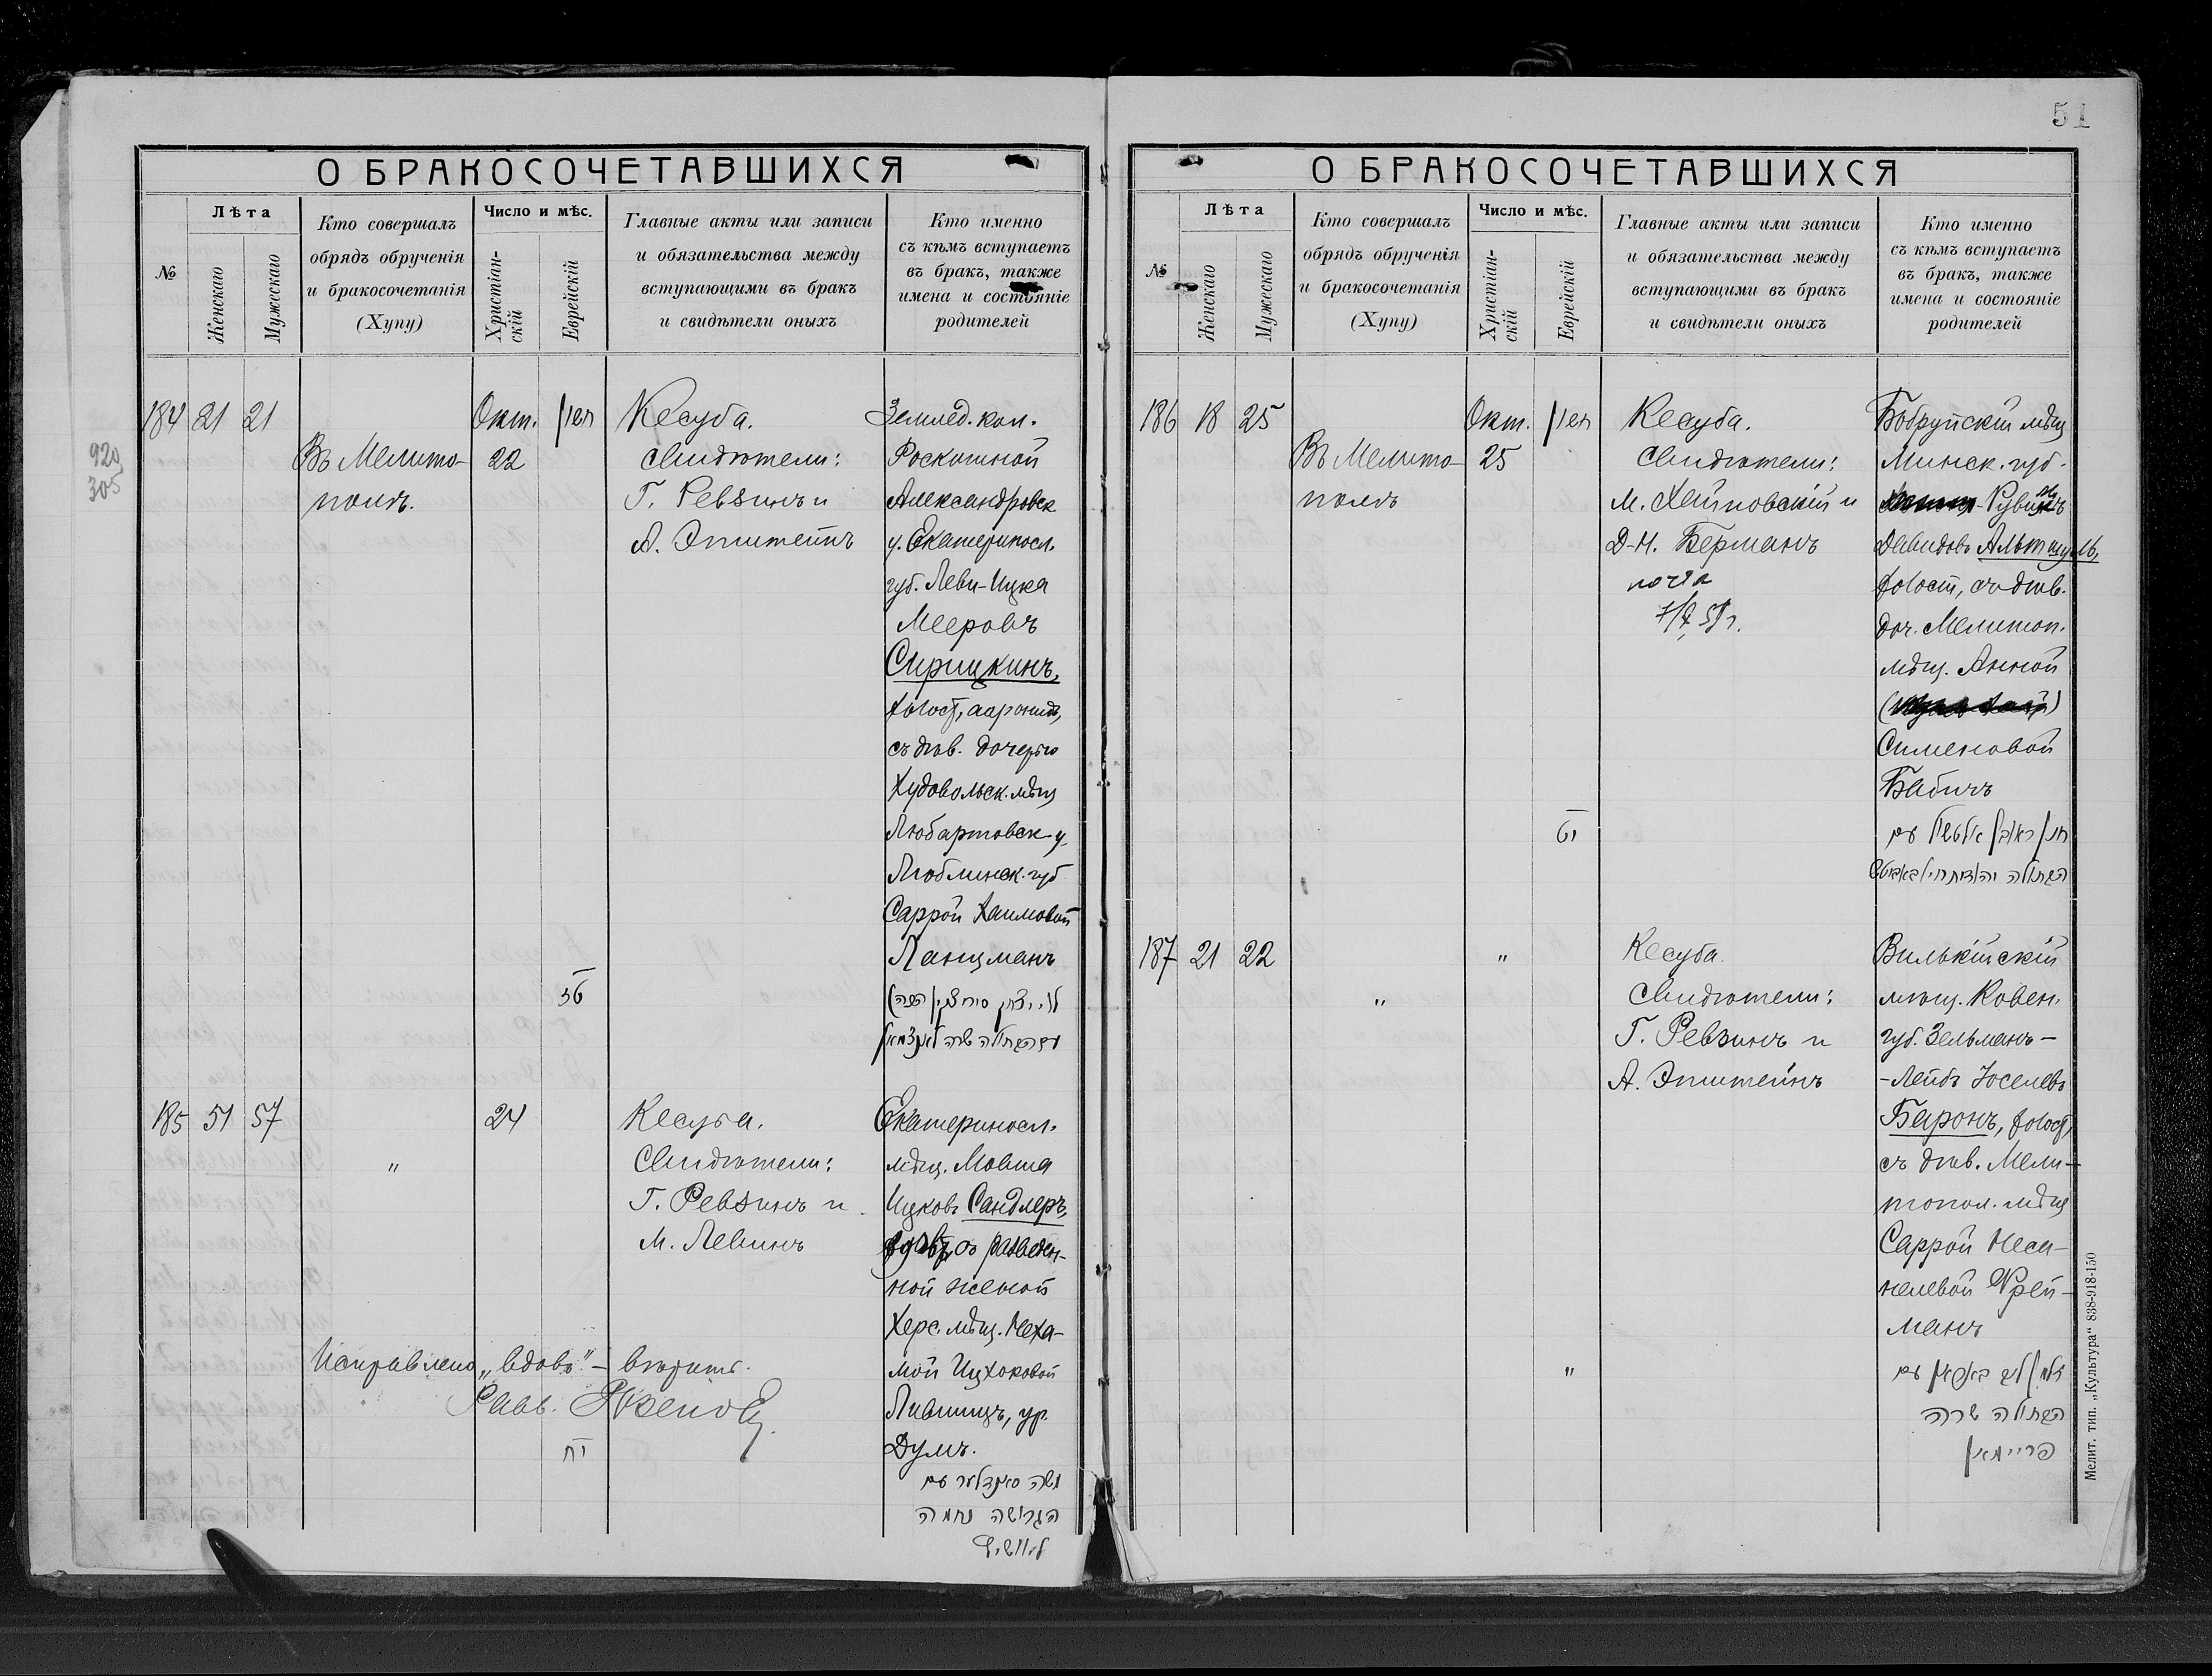 51
О БРАКОСОЧЕТАВШИХСЯ
№
Лѣта
Женскаго
Мужескаго
Кто совершалъ
обрядъ обрученія
и бракосочетанія
(Хупу)
Число и мѣс.
Христіан-
скій
Еврейскій
Главные акты или записи
и обязательства между
вступающими въ бракъ
и свидѣтели оныхъ
Кто именно
съ кѣмъ вступаетъ
въ бракъ, также
имена и состояніе
родителей
920
305
184 21 21
Въ Мелито-
полѣ.
Окт.
22
Кесуба.
Свидѣтели:
Г. Ревзинъ и
А. Эпштейнъ
Землед. кол.
Роскошной
Александровск
у. Екатеринос.
губ. Леви-Ицка
Мееровъ
Сирицкинъ,
холост, ааронидъ,
съ дѣв. дочерью
Худовольск. мѣщ
Любартовск. у.
Люблинск. губ
Саррой Хаимовой
Ланцманъ
185 51 57
"
24
Кесуба.
Свидѣтели:
Г. Ревзинъ и
М. Левинъ
Екатериносл.
мѣщ. Мовша
Ицковъ Сандлеръ,
съ разведен-
ной женой
Херс. мѣщ. Неха-
мой Ицхоковой
Лившицъ, ур.
Думъ.
משה סאנדלער עם
הגרושה נחמה
ליוושיץ
יח
Исправлено „вдовъ" – вѣрить.
Равв.
О БРАКОСОЧЕТАВШИХСЯ
№
Лѣта
Женскаго
Мужескаго
Кто совершалъ
обрядъ обрученія
и бракосочетанія
(Хупу)
Число и мѣс.
Христіан-
скій
Еврейскій
Главные акты или записи
и обязательства между
вступающими въ бракъ
и свидѣтели оныхъ
Кто именно
съ кѣмъ вступаетъ
въ бракъ, также
имена и состояніе
родителей
186 18 25
Въ Мелито-
полѣ
Окт.
25
Кесуба.
Свидѣтели:
М. Хайновскій и
Д-Н. Берманъ
Бобруйскій мѣщ
Минск. губ.
Рувинъ
Давидовъ Альтшуль,
холост, съ дѣв.
доч. Мелитоп.
мѣщ. Анной
Сименовой
Бабичъ
187 21 22
"
"
Кесуба.
Свидѣтели:
Г. Ревзинъ и
А. Эпштейнъ
Вилькійскій
мѣщ. Ковен.
губ. Зельманъ-
-Лейбъ Іоселевъ
Баронъ, холост,
съ дѣв. Мели-
топол. мѣщ
Саррой Неса-
нелевой Фрей-
манъ
"
הבתולה שרה
פריימאן
Мелит. тип. „Культура" 838-918-150